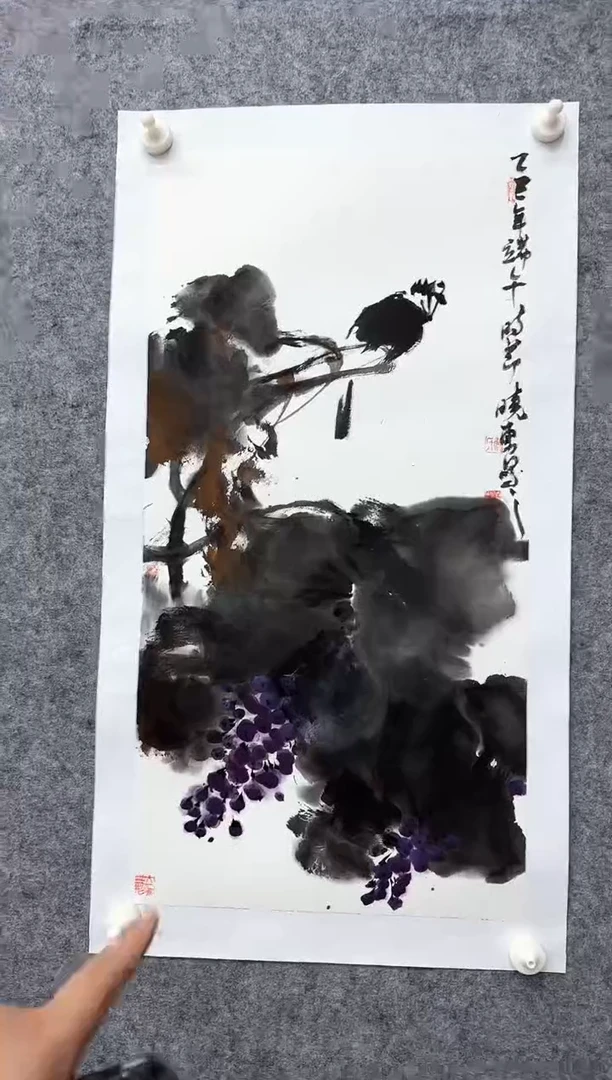 乙巳年端午时节晓勇写之